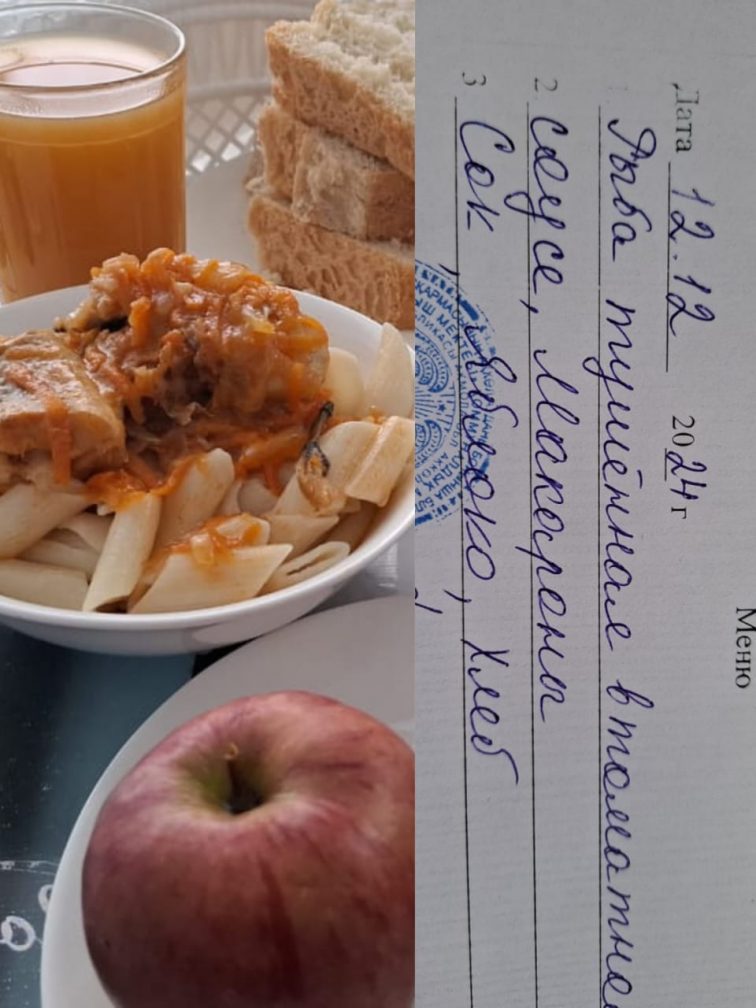 Меню
Дата 12.12 2024 г
1. Рыба тушённая в томатно
2. соусе, Макароны
3. Сок, Яблоко, хлеб